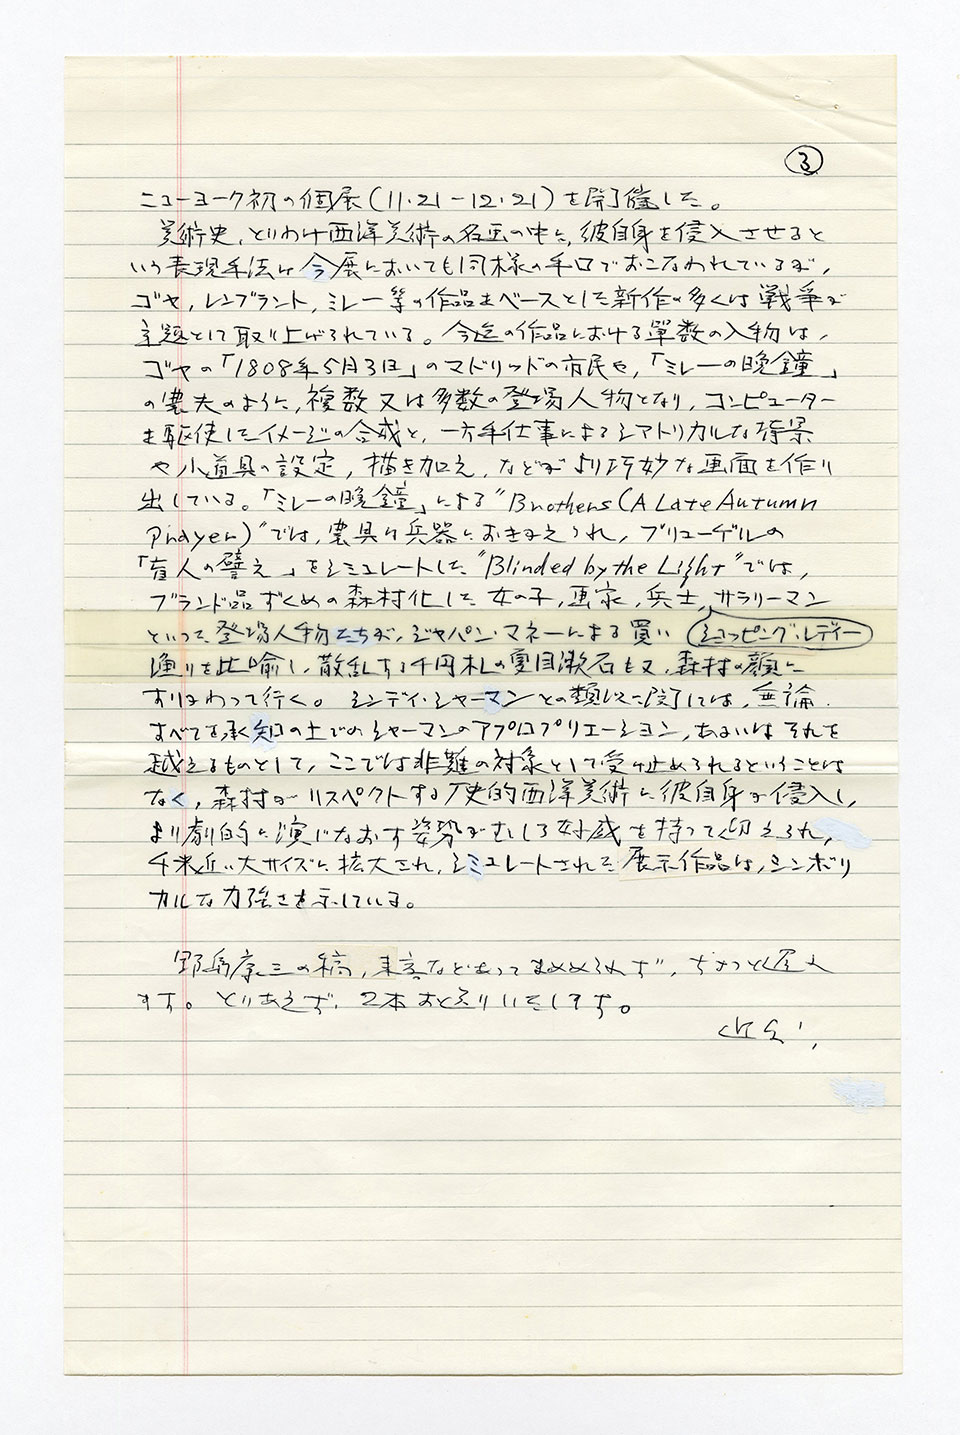 ③
ニューヨーク初の個展(11.21-12.21)を開催した。
美術史、とりわけ西洋美術の名画の中に、彼自身を侵入させると
いう表現手法は今展においても同様の手口でおこなわれているが、
ゴヤ、レンブラント、ミレー等の作品をベースとした新作の多くは戦争が
主題として取り上げられている。今迄の作品における単数の人物は、
ゴヤの「1808年5月3日」のマドリッドの市民や、「ミレーの晩鐘」
の農夫のように、複数又は多数の登場人物となり、コンピューター
を駆使したイメージの合成と、一方手仕事によるシアトリカルな背景
や小道具の設定、描き加え、などがより巧妙な画面を作り
出している。「ミレーの晩鐘」による"Brothers(A Late Autumn
Prayer)"では、農具は兵器におきかえられ、ブリューゲルの
「盲人の譬え」をシミュレートした"Blinded by the Light"では、
ブランド品ずくめの森村化した女の子、画家、兵士、サラリーマン
ショッピング・レディー
といった登場人物たちが、ジャパン・マネーによる買い
漁りを比喩し、散乱する千円札の夏目漱石も又、森村の顔に
すりかわって行く。シンディ・シャーマンとの類似に関しては、無論
すべてを承知の上でのシャーマンのアプロプリエーション、あるいはそれを
越えるものとして、ここでは非難の対象として受け止められるということは
なく、森村がリスペクトする歴史的西洋美術に彼自身が侵入し、
より劇的に演じなおす姿勢がむしろ好感を持って迎えられ、
千米近い大サイズに拡大され、シミュレートされた展示作品は、シンボリ
カルな力強さを示している。
野島康三の稿、
ます。とりあえず、2本お送りいたします。